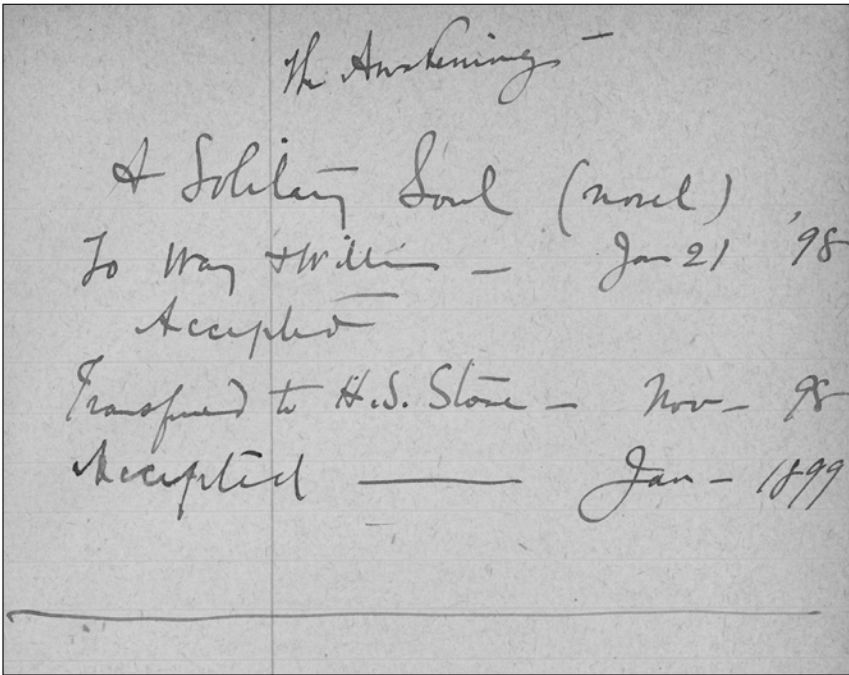 The Awakening —
A Solitary Soul (novel)
To Way & Williams — Jan 21 '98
Accepted
Transferred to H.S. Stone — Nov — 98
Accepted — Jan — 1899